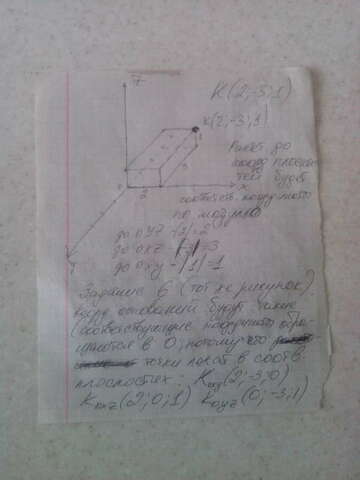 Z
K(2;-3;1)
K(2;-3;1)
1
2
3
x
y
до
коорд плоскос
тей будет
соответств. координата
по модулю
до oyz - |2| = 2
до oxz - |-3| = 3
до oxy - |1| = 1
Задание 6 (тот же рисунок).
Коорд оснований будут такие
(соответствующие координаты обра-
щаются в 0, потому что
точки лежат в соотв.
плоскостях. Koxy(2;-3;0)
Koxz(2;0;1) Koyz(0;-3;1)